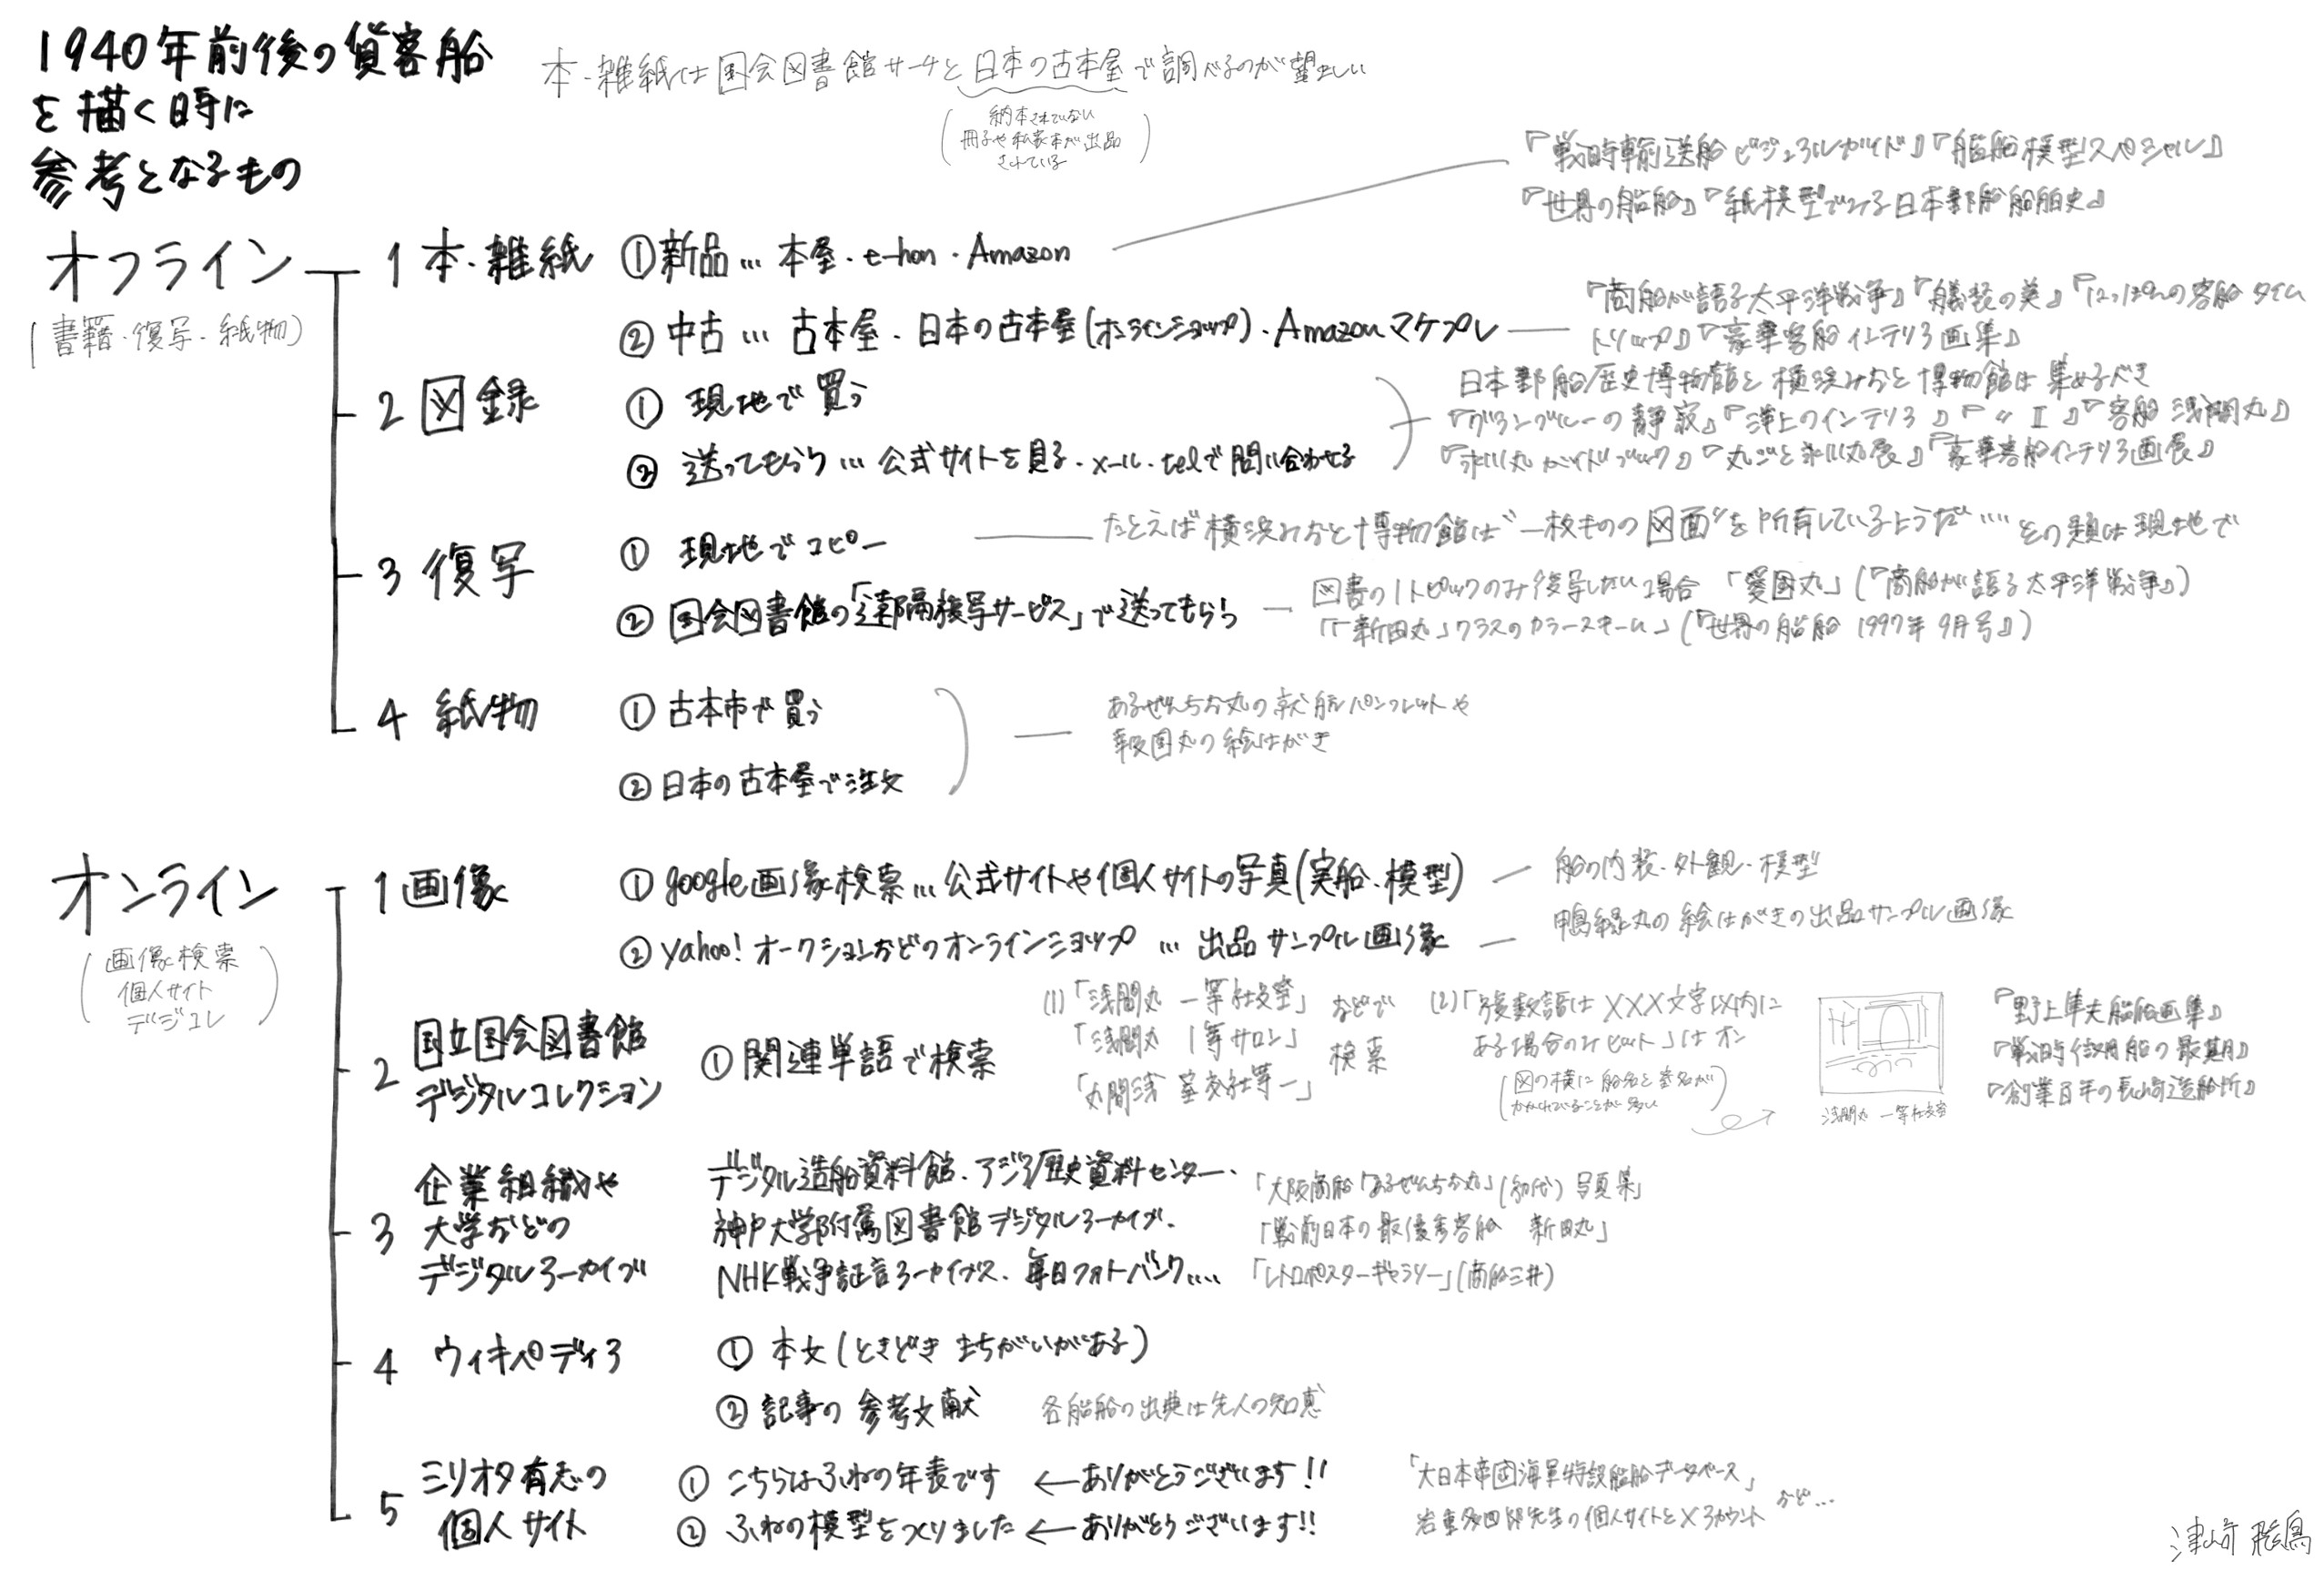 1940年前後の貨客船
を描く時に
参考となるもの
本・雑紙は国会図書館サーチと日本の古本屋で調べるのが望ましい
(納本されていない
冊子や私家本が出品
されている)
オフライン
(書籍・復写・紙物)
1 本・雑紙 ①新品… 本屋・e-hon・Amazon
『戦時輸送船ビジュアルガイド』『艦船模型スペシャル』
『世界の艦船』『紙模型でみる日本郵船船舶史』
②中古… 古本屋・日本の古本屋(オンラインショップ)・Amazonマケプレ
『商船が語る太平洋戦争』『艤装の美』『にっぽんの客船タイム
トリップ』『豪華客船インテリア画集』
2 図録 ① 現地で買う
② 送ってもらう… 公式サイトを見る・メール・telで問い合わせる
日本郵船歴史博物館と横浜みなと博物館は集めるべき
『グランブルーの静寂』『洋上のインテリア』『〃Ⅱ』『客船浅間丸』
『氷川丸ガイドブック』『丸ごと氷川丸展』『豪華客船インテリア画展』
3 復写 ① 現地でコピー
たとえば横浜みなと博物館は"一枚ものの図面"を所有しているようだ…その類は現地で
② 国会図書館の「遠隔複写サービス」で送ってもらう
図書の1トピックのみ複写したい場合 「愛国丸」(『商船が語る太平洋戦争』)
「「新田丸」クラスのカラースキーム」(『世界の艦船 1997年9月号』)
4 紙物 ① 古本市で買う
② 日本の古本屋で注文
あるぜんちな丸の就航パンフレットや
報国丸の絵はがき
オンライン
(画像検索
個人サイト
デジコレ)
1 画像 ① google画像検索… 公式サイトや個人サイトの写真(実船・模型)
船の内装・外観・模型
② yahoo!オークションなどのオンラインショップ … 出品サンプル画像
鴨緑丸の絵はがきの出品サンプル画像
2 国立国会図書館
デジタルコレクション
① 関連単語で検索
(1)「浅間丸 一等社交室」
「浅間丸 1等サロン」
「丸間浅 室交社等一」
などで
検索
(2)「複数語はXXX文字以内に
ある場合のみヒット」はオン
(図の横に船名と室名が
かかれていることが多い)
浅間丸 一等社交室
『野上隼夫艦船画集』
『戦時徴用船の最期』
『創業百年の長崎造船所』
3 企業組織や
大学などの
デジタルアーカイブ
デジタル造船資料館・アジア歴史資料センター・
神戸大学附属図書館デジタルアーカイブ・
NHK戦争証言アーカイブス・毎日フォトバンク….
「大阪商船「あるぜんちな丸」(初代)写真集」
「戦前日本の最優秀客船 新田丸」
「レトロポスターギャラリー」(商船三井)
4 ウィキペディア ① 本文(ときどきまちがいがある)
② 記事の参考文献 各艦船の出典は先人の知恵
5 ミリオタ有志の
個人サイト
① こちらはふねの年表です ←ありがとうございます!!
② ふねの模型をつくりました ←ありがとうございます!!
「大日本帝国海軍特設艦船データベース」
岩重多四郎先生の個人サイトとXアカウント など…
津崎 飛鳥